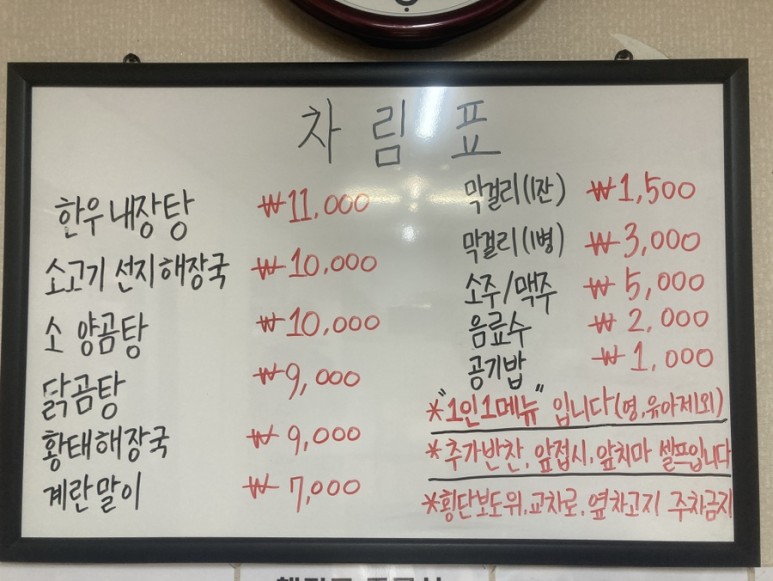 차림표
한우내장탕 ₩11,000
소고기 선지해장국 ₩10,000
소 양곰탕 ₩10,000
닭곰탕 ₩9,000
황태해장국 ₩9,000
계란말이 ₩7,000
막걸리(1잔) ₩1,500
막걸리(1병) ₩3,000
소주/맥주 ₩5,000
음료수 ₩2,000
공기밥 ₩1,000
*"1인1메뉴" 입니다(영,유아제외)
*추가반찬, 앞접시, 앞치마 셀프입니다
*횡단보도위, 교차로, 옆차고지 주차금지